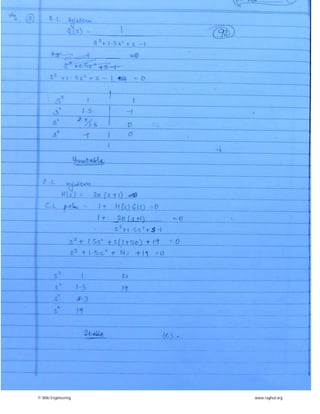 O.L. system.
G(s) = 1
s³+1.5s²+s-1
s³+1.5s²+s-1
s³ + 1.5s² + s - 1 = 0
s³ 1 1
s² 1.5 -1
s¹ 2.5/1.5 0
s⁰ -1 0
Unstable
C.L. system
H(s) = 20(s+1)
C.L. poles = 1 + H(s)G(s) = 0
1 + 20(s+1) = 0
s³+1.5s²+s-1
s³ + 1.5s² + s(1+20) + 19 = 0
s³ + 1.5s² + 21s + 19 = 0
s³ 1 21
s² 1.5 19
s¹ 8.3
s⁰ 19
Stable (C).
www.raghul.org